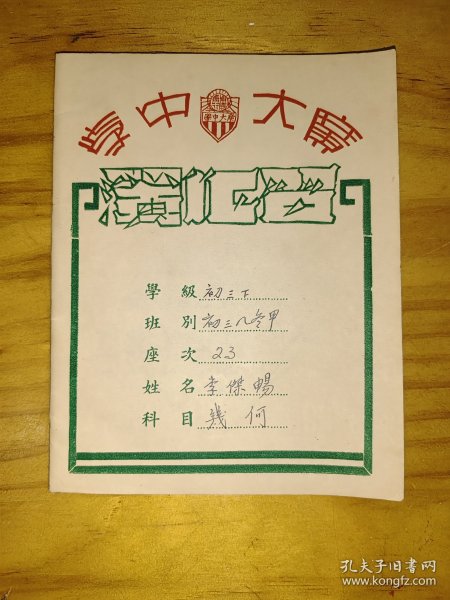 廣大中學
學級 初三下
班別 初三
座次 23
姓名 李傑暢
科目 幾何
孔夫子旧書网
www.kongfz.com